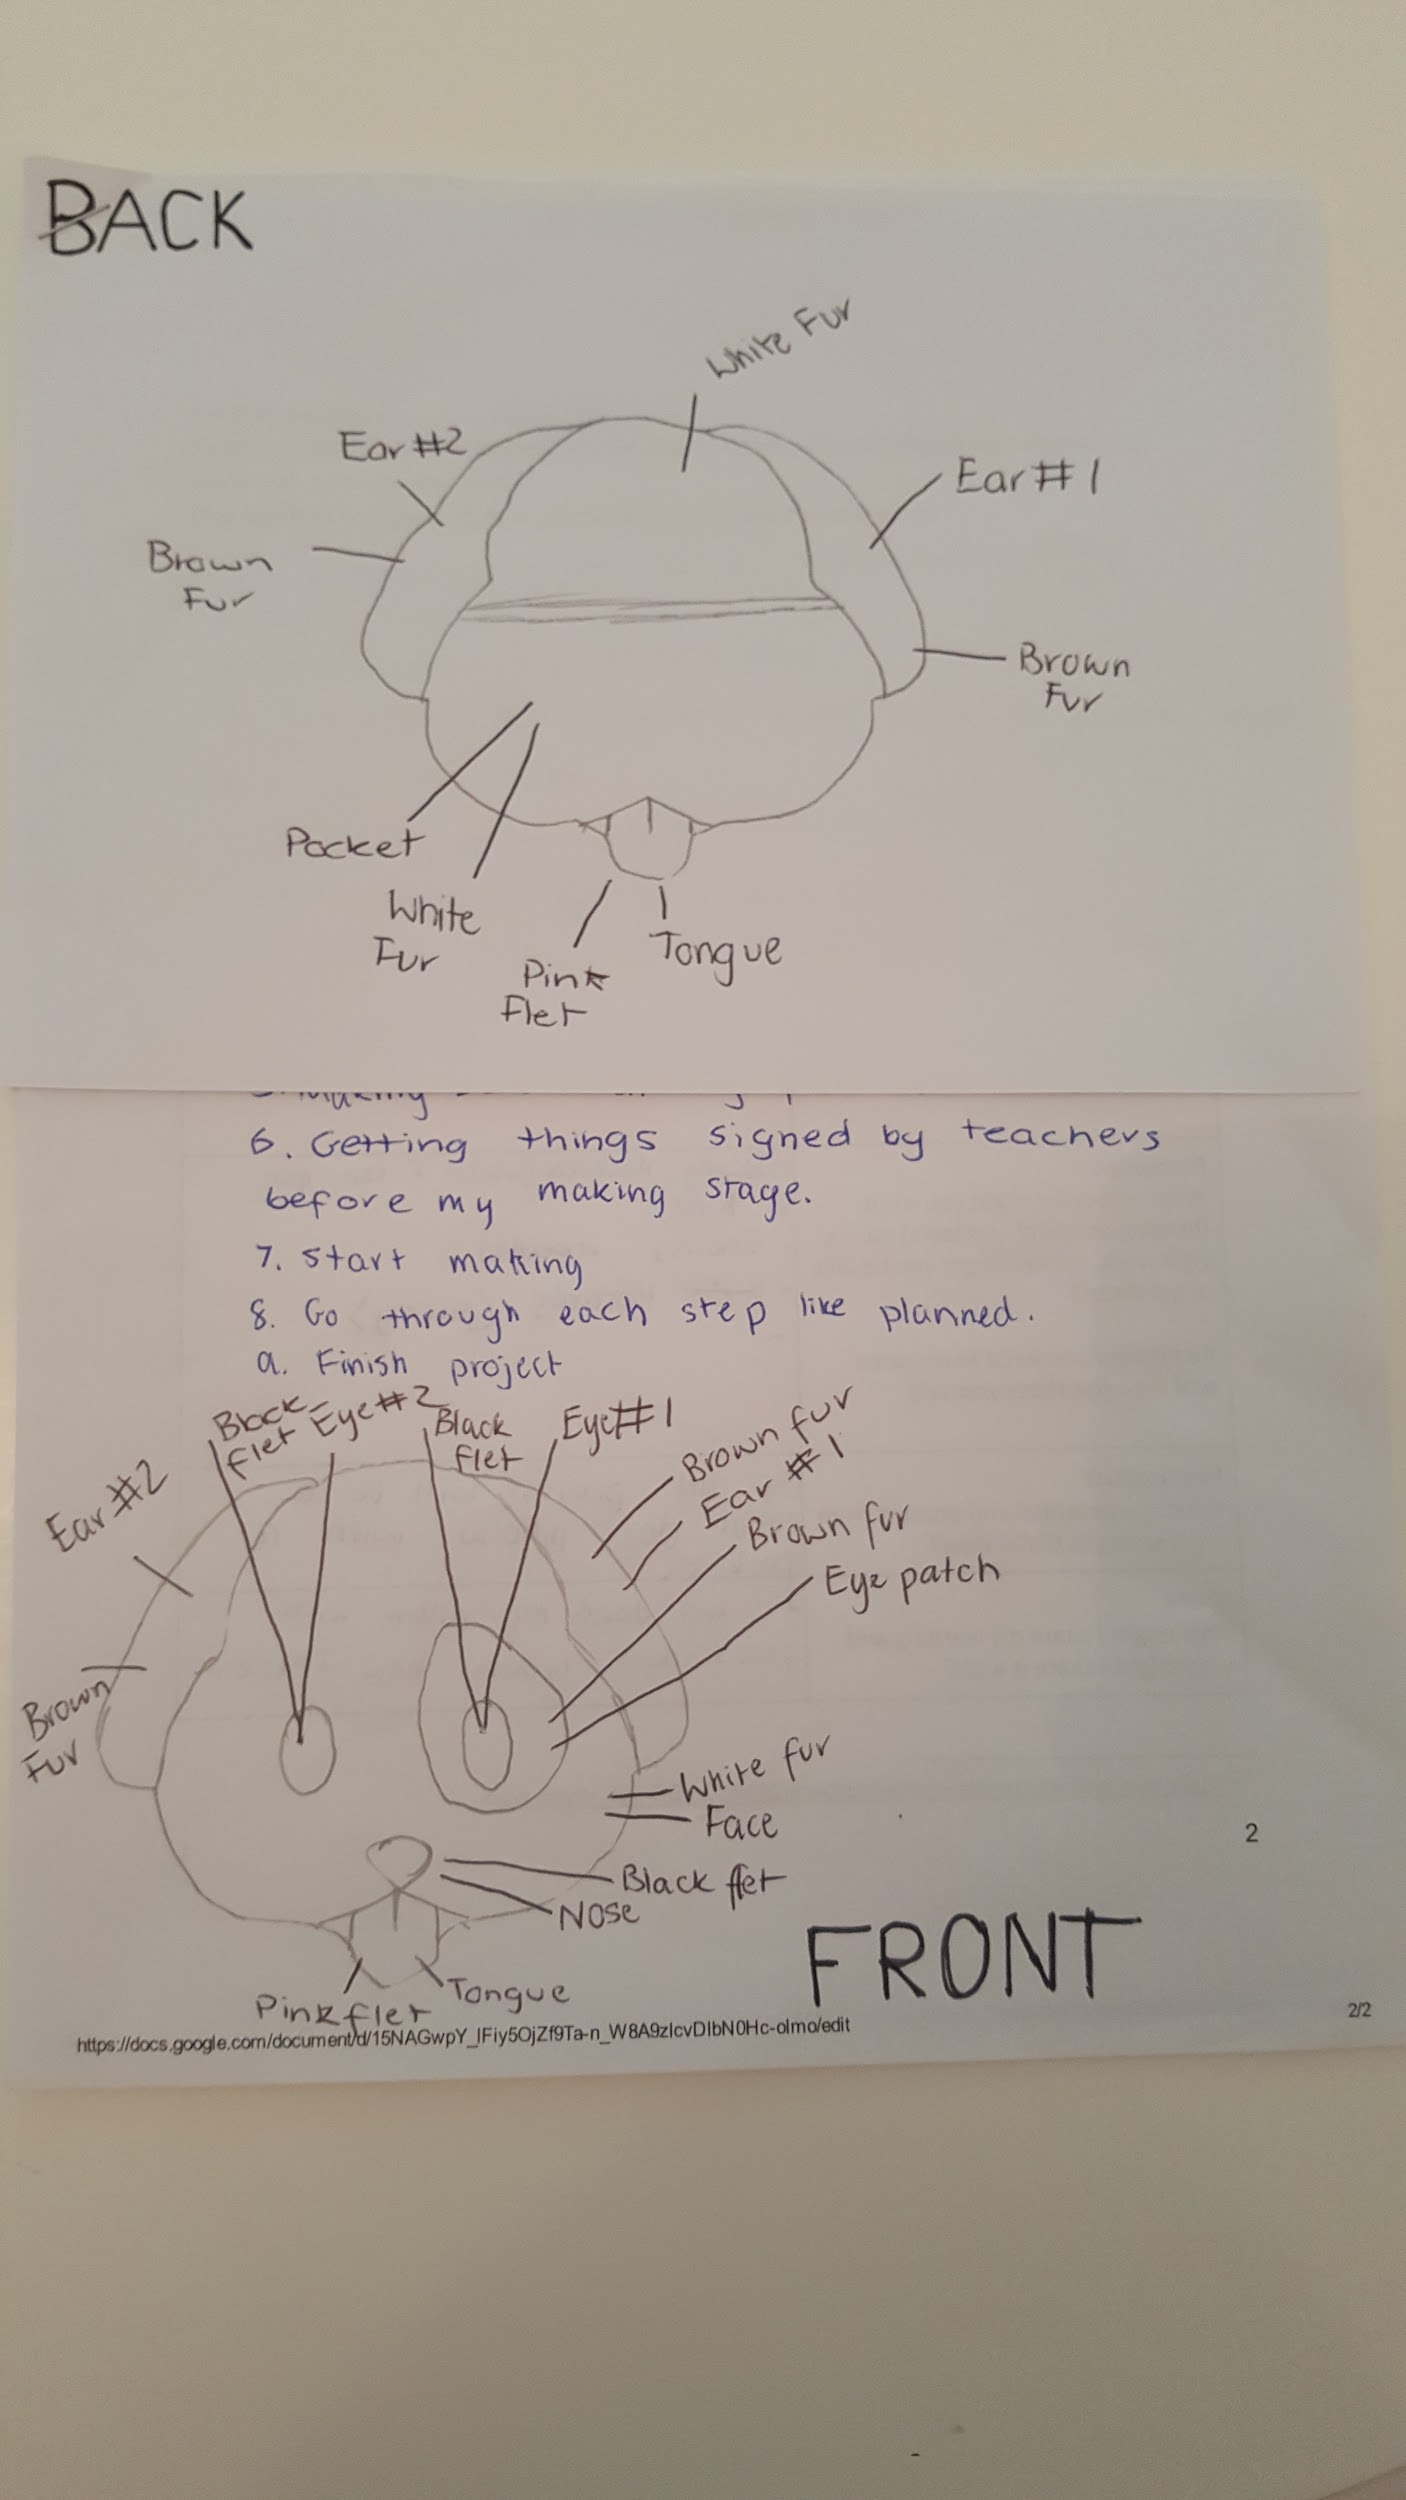 BACK
White Fur
Ear #2
Ear # 1
Brown
Fur
Brown
Fur
Pocket
White
Fur
Tongue
Pink
Flet
Making
6. Getting things signed by teachers
before my making stage.
7. Start making
8. Go through each step like planned.
9. Finish project
Black
flet
Eye #2
Black
flet
Eye #1
Brown fur
Ear # 1
Brown fur
Eye patch
Ear #2
Brown
Fur
White fur
Face
Black flet
Nose
Pink flet
Tongue
2
FRONT
2/2
https://docs.google.com/document/d/15NAGwpY_IFiy5OjZf9Ta-n_W8A9zlcvDIbN0Hc-olmo/edit